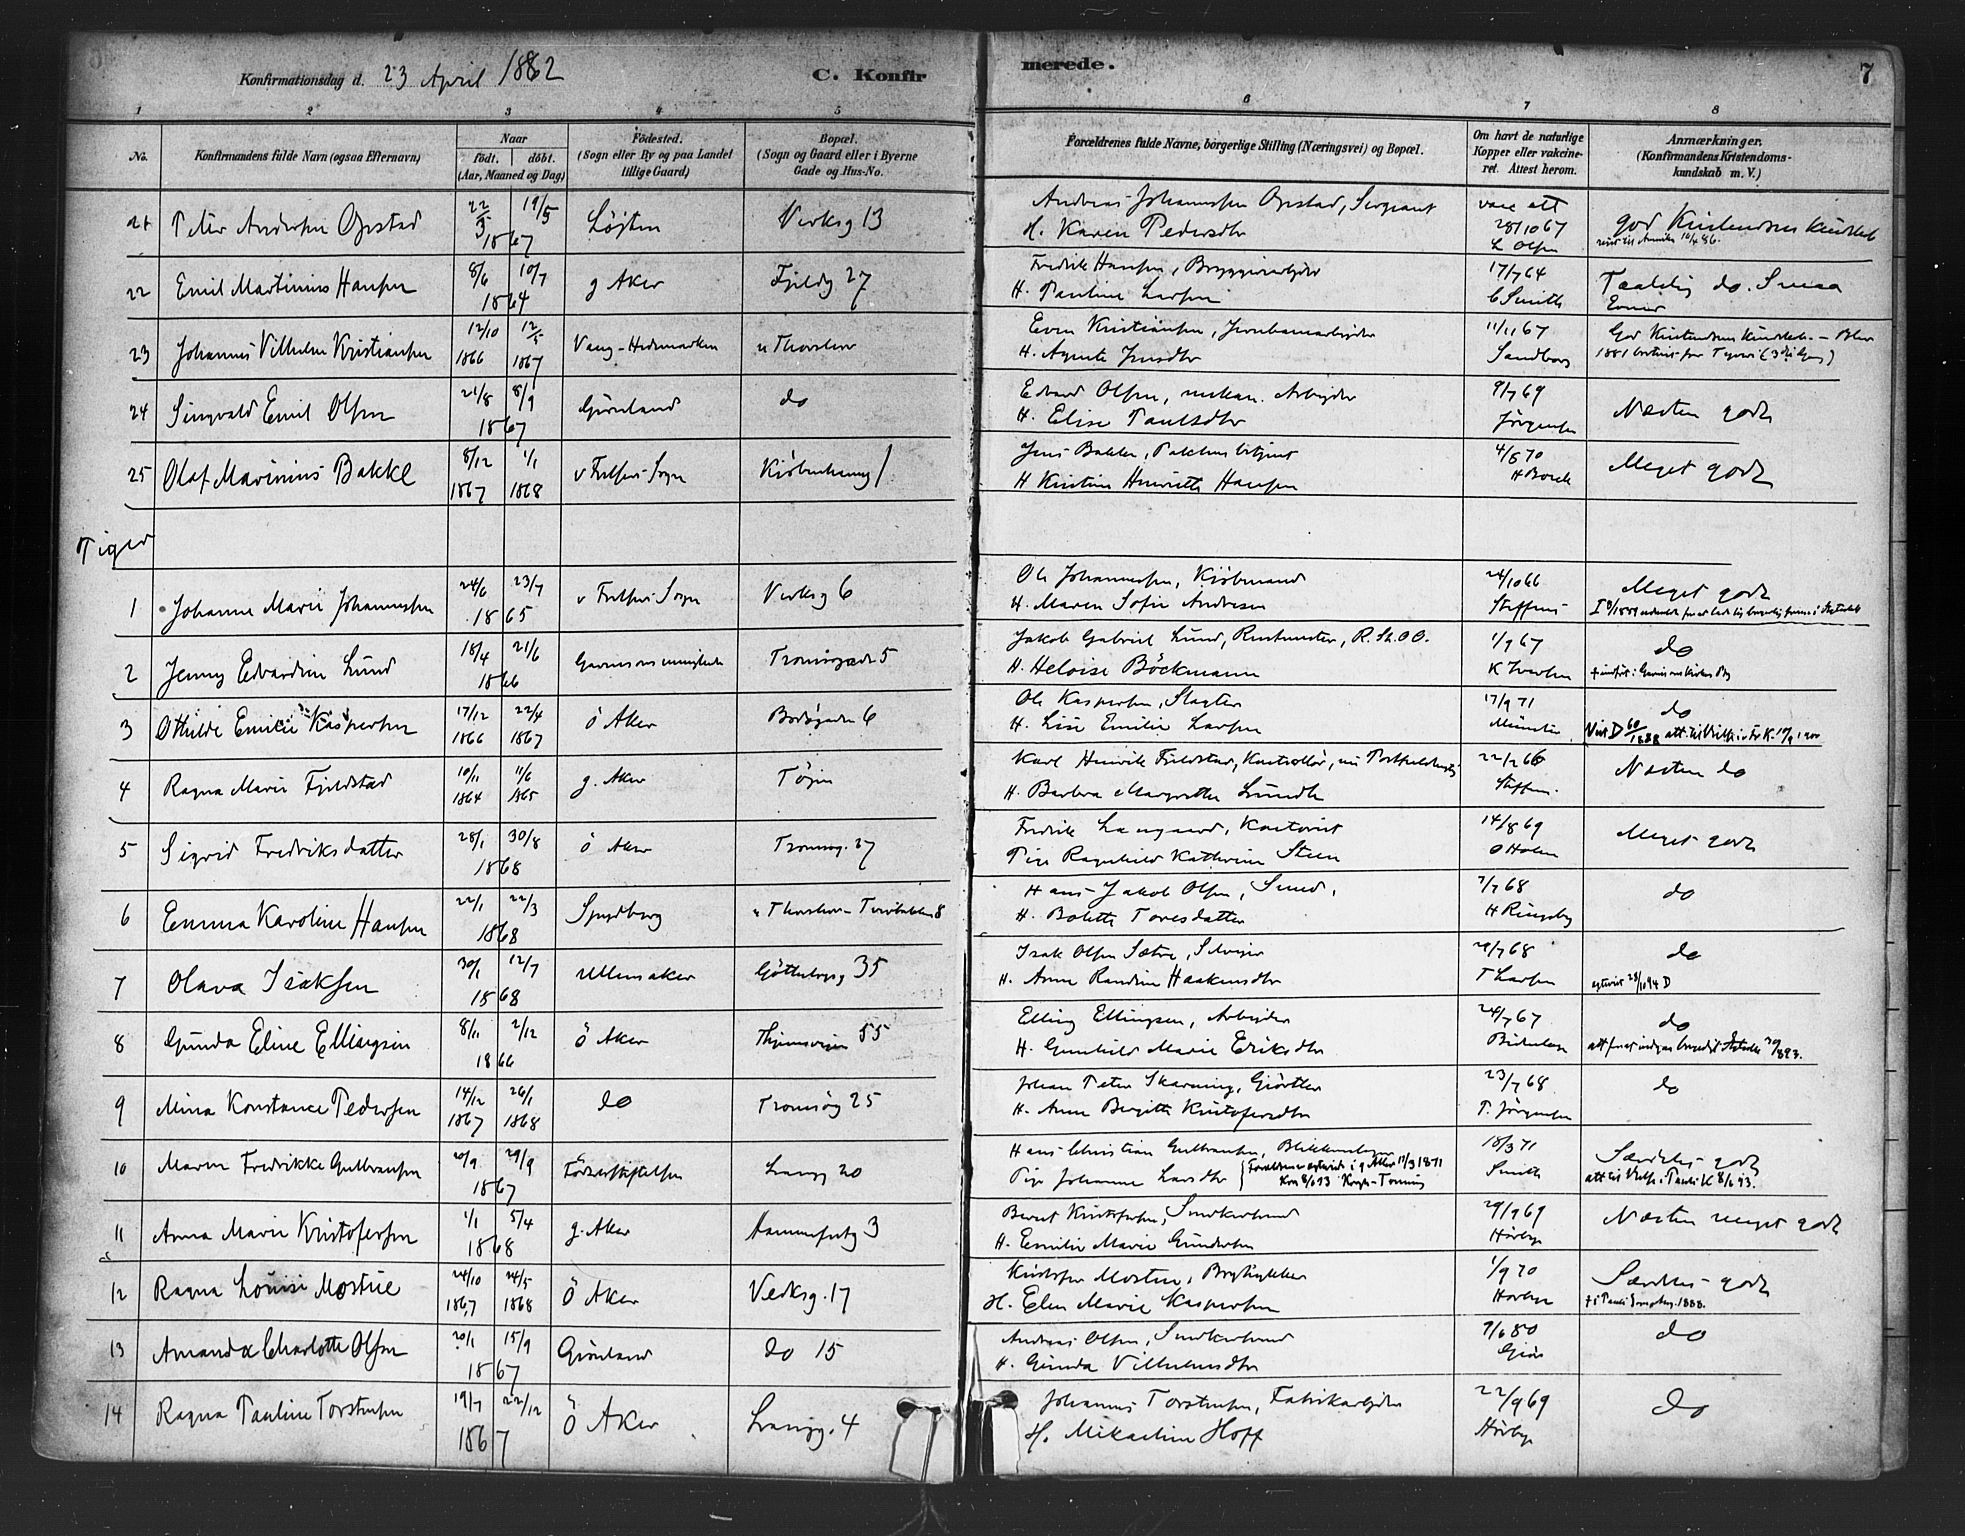 Konfirmationsdag d. 23 April 1882
C. Konfirmerede.
7
1 2 3 4 5 6 7 8
No.
Konfirmandens fulde Navn (ogsaa Efternavn)
Naar
födt. döbt.
(Aar, Maaned og Dag)
Födested.
(Sogn eller By og paa Landet
tillige Gaard)
Bopæl.
(Sogn og Gaard eller i Byerne
Gade og Hus-No.
Forældrenes fulde Navne, börgerlige Stilling (Næringsvei) og Bopæl.
Om havt de naturlige
Kopper eller vakcine-
ret. Attest herom.
Anmærkninger.
(Konfirmandens Kristendoms-
kundskab m. V.)
21 Peter Andersen Opstad 19/5 1867 Løjten Verksg 13 Andreas Johannesen Opstad, Sergeant
H. Karen Pedersdtr 28/10 67 L Olsen
22 Emil Martinius Hansen 8/6 10/7 1864 g Aker Fjeldg 27 Fredrik Hansen, Bryggeriarbejder
H. Pauline Larsen 17/7 64 C Smith Taalelig do. Smaa Evner
23 Johannes Vilhelm Kristiansen 12/10 1866 12/5 1867 Vang-Hedemarken Even Kristiansen, Jernbanearbejder
H. Agnete Jensdtr 11/11 67 Sandberg
24 Singvald Emil Olsen 21/8 8/9 1867 Grønland do Edvard Olsen, mekan. Arbejder
H. Elise Paulsdtr 9/7 69 Jørgensen Næsten godt
25 Olaf Marinius Bakke 8/12 1867 1/1 1868 Jens Bakke
H Kristine Henriette Hansen 4/8 70 Meget godt
Piger
1 Johanne Marie Johannesen 24/6 23/7 1865 Verksg 6 Ole Johannesen, Kjøbmand
H. Maren Sofie Andersen 24/10 66 Steffens Meget godt
2 Jenny Edvardine Lund 18/4 21/6 1866 Tromsøgade 5 Jakob Gabriel Lund, Rustmester, R. St. O O.
H. Heloise Böckmann 1/9 67 do
3 Othilde Emilie Kaspersen 17/12 1866 22/4 1867 ö Aker Bodøgaden 6 Ole Kaspersen, Slagter
H. Lise Emilie Larsen 17/9 71 Münster do
4 Ragna Marie Fjeldstad 10/11 1864 11/6 1865 g. Aker Tøjen Karl Henrik Fjeldstad, Kontrollør
H. Barbra Margrethe Lund 22/2 66 Steffens. Næsten do
5 Sigrid Fredriksdatter 28/1 30/8 1868 ö Aker Tromsøg. 27 Fredrik Langaard, Kontorist
Pige Ragnhild Kathrine Steen 14/8 69 O Holm Meget godt
6 Emma Karoline Hansen 22/1 22/3 1868 Spydberg Hans Jakob Olsen, Smed,
H. Bolette Toresdatter 7/7 68 H Ringeby do
7 Olava Isaksen 30/1 12/7 1868 Ullensaker Götteborgsg 35 Isak Olsen Sætre
H. Anne Randine Haakensdtr 29/7 68 T Larsen do
8 Gunda Eline Ellingsen 8/11 2/12 1866 ö Aker 55 Elling Ellingsen, Arbejder
H. Gunhild Marie Eriksdtr 24/7 67 do
9 Mina Konstance Pedersen 14/12 1867 26/1 1868 do Tromsög 25 Johan Peter Skarning, Gjørtler
H. Anne Birgitte Kristofersdtr 23/7 68 T. Jørgensen do
10 Maren Fredrikke Gulbransen 20/9 29/9 1867 Fødselsstiftelsen 20 Hans Christian Gulbransen, Blikkenslager
Pige Johanne Larsdtr 18/3 71 Smith Særdeles godt
11 Anna Marie Kristofersen 1/1 5/4 1868 g. Aker Hammerfestg 3 Bernt Kristofersen, Snedkersvend
H. Emilie Marie Gundersen 29/9 69 Hørbye Næsten meget godt
12 Ragna Louise Mostue 24/10 1867 24/5 1868 Ö Aker Verksg. 17 Kristofer Mostue
H. Elen Marie Kaspersen 1/9 70 Hørbye Særdeles godt
13 Amanda Charlotte Olsen 20/1 15/9 1867 Grønland do 15 Andreas Olsen, Snedkersvend
H. Gunda Vilhelmsdtr 9/6 80 do
14 Ragna Pauline Torstensen 19/7 22/12 1867 ö Aker 4 Johannes Torstensen, Fabrikarbejder
H. Mikaeline Hoff 22/9 69 Hørbye do